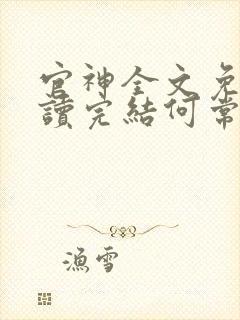 官神全文免
讀完結何常
漁雪